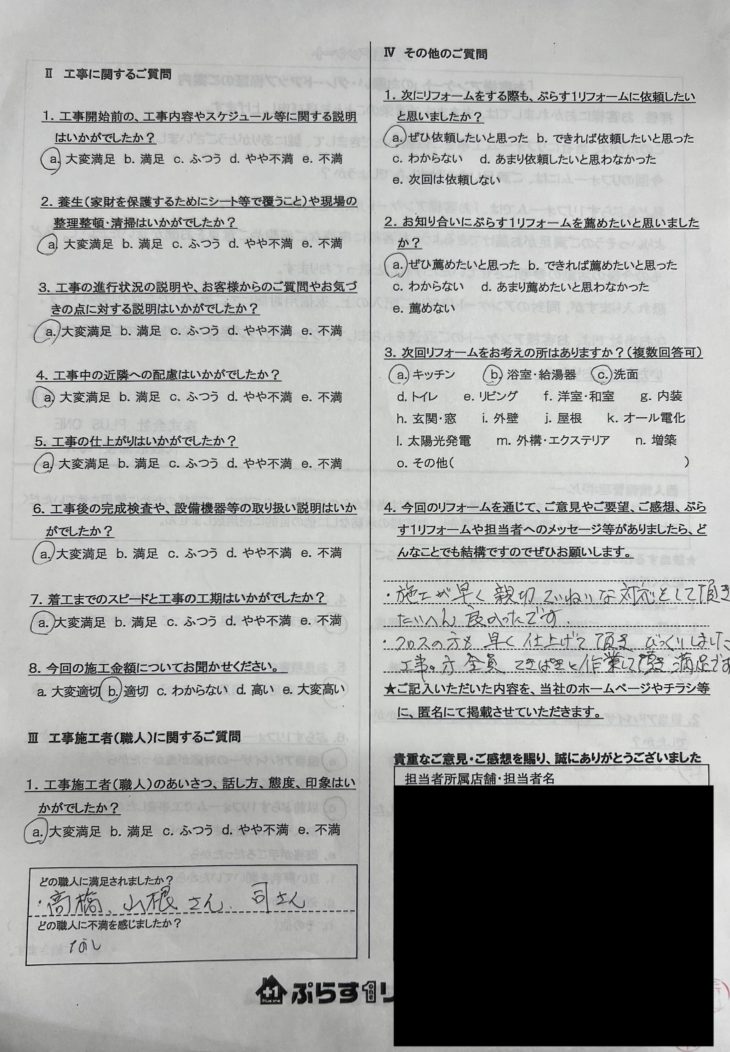 Ⅱ 工事に関するご質問
1. 工事開始前の、工事内容やスケジュール等に関する説明
はいかがでしたか？
a. 大変満足 b. 満足 c. ふつう d. やや不満 e. 不満
2. 養生（家財を保護するためにシート等で覆うこと）や現場の
整理整頓・清掃はいかがでしたか？
a. 大変満足 b. 満足 c. ふつう d. やや不満 e. 不満
3. 工事の進行状況の説明や、お客様からのご質問やお気づ
きの点に対する説明はいかがでしたか？
a. 大変満足 b. 満足 c. ふつう d. やや不満 e. 不満
4. 工事中の近隣への配慮はいかがでしたか？
a. 大変満足 b. 満足 c. ふつう d. やや不満 e. 不満
5. 工事の仕上がりはいかがでしたか？
a. 大変満足 b. 満足 c. ふつう d. やや不満 e. 不満
6. 工事後の完成検査や、設備機器等の取り扱い説明はいか
がでしたか？
a. 大変満足 b. 満足 c. ふつう d. やや不満 e. 不満
7. 着工までのスピードと工事の工期はいかがでしたか？
a. 大変満足 b. 満足 c. ふつう d. やや不満 e. 不満
8. 今回の施工金額についてお聞かせください。
a. 大変適切 b. 適切 c. わからない d. 高い e. 大変高い
Ⅲ 工事施工者（職人）に関するご質問
1. 工事施工者（職人）のあいさつ、話し方、態度、印象はい
かがでしたか？
a. 大変満足 b. 満足 c. ふつう d. やや不満 e. 不満
どの職人に満足されましたか？
・高橋、山根さん、司さん
どの職人に不満を感じましたか？
なし
Ⅳ その他のご質問
1. 次にリフォームをする際も、ぷらす1リフォームに依頼したい
と思いましたか？
a. ぜひ依頼したいと思った b. できれば依頼したいと思った
c. わからない d. あまり依頼したいと思わなかった
e. 次回は依頼しない
2. お知り合いにぷらす1リフォームを薦めたいと思いました
か？
a. ぜひ薦めたいと思った b. できれば薦めたいと思った
c. わからない d. あまり薦めたいと思わなかった
e. 薦めない
3. 次回リフォームをお考えの所はありますか？（複数回答可）
a. キッチン b. 浴室・給湯器 c. 洗面
d. トイレ e. リビング f. 洋室・和室 g. 内装
h. 玄関・窓 i. 外壁 j. 屋根 k. オール電化
l. 太陽光発電 m. 外構・エクステリア n. 増築
o. その他（ ）
4. 今回のリフォームを通じて、ご意見やご要望、ご感想、ぷら
す1リフォームや担当者へのメッセージ等がありましたら、ど
んなことでも結構ですのでぜひお願いします。
・施工が早く親切ていねいな対応をして頂き
たいへん良かったです。
・クロスの方も早く仕上げて頂きびっくりしました
工事の方全員てきぱきと作業して頂き満足です
★ご記入いただいた内容を、当社のホームページやチラシ等
に、匿名にて掲載させていただきます。
貴重なご意見・ご感想を賜り、誠にありがとうございました
担当者所属店舗・担当者名
+1 Plus one ぷらす1 one リ